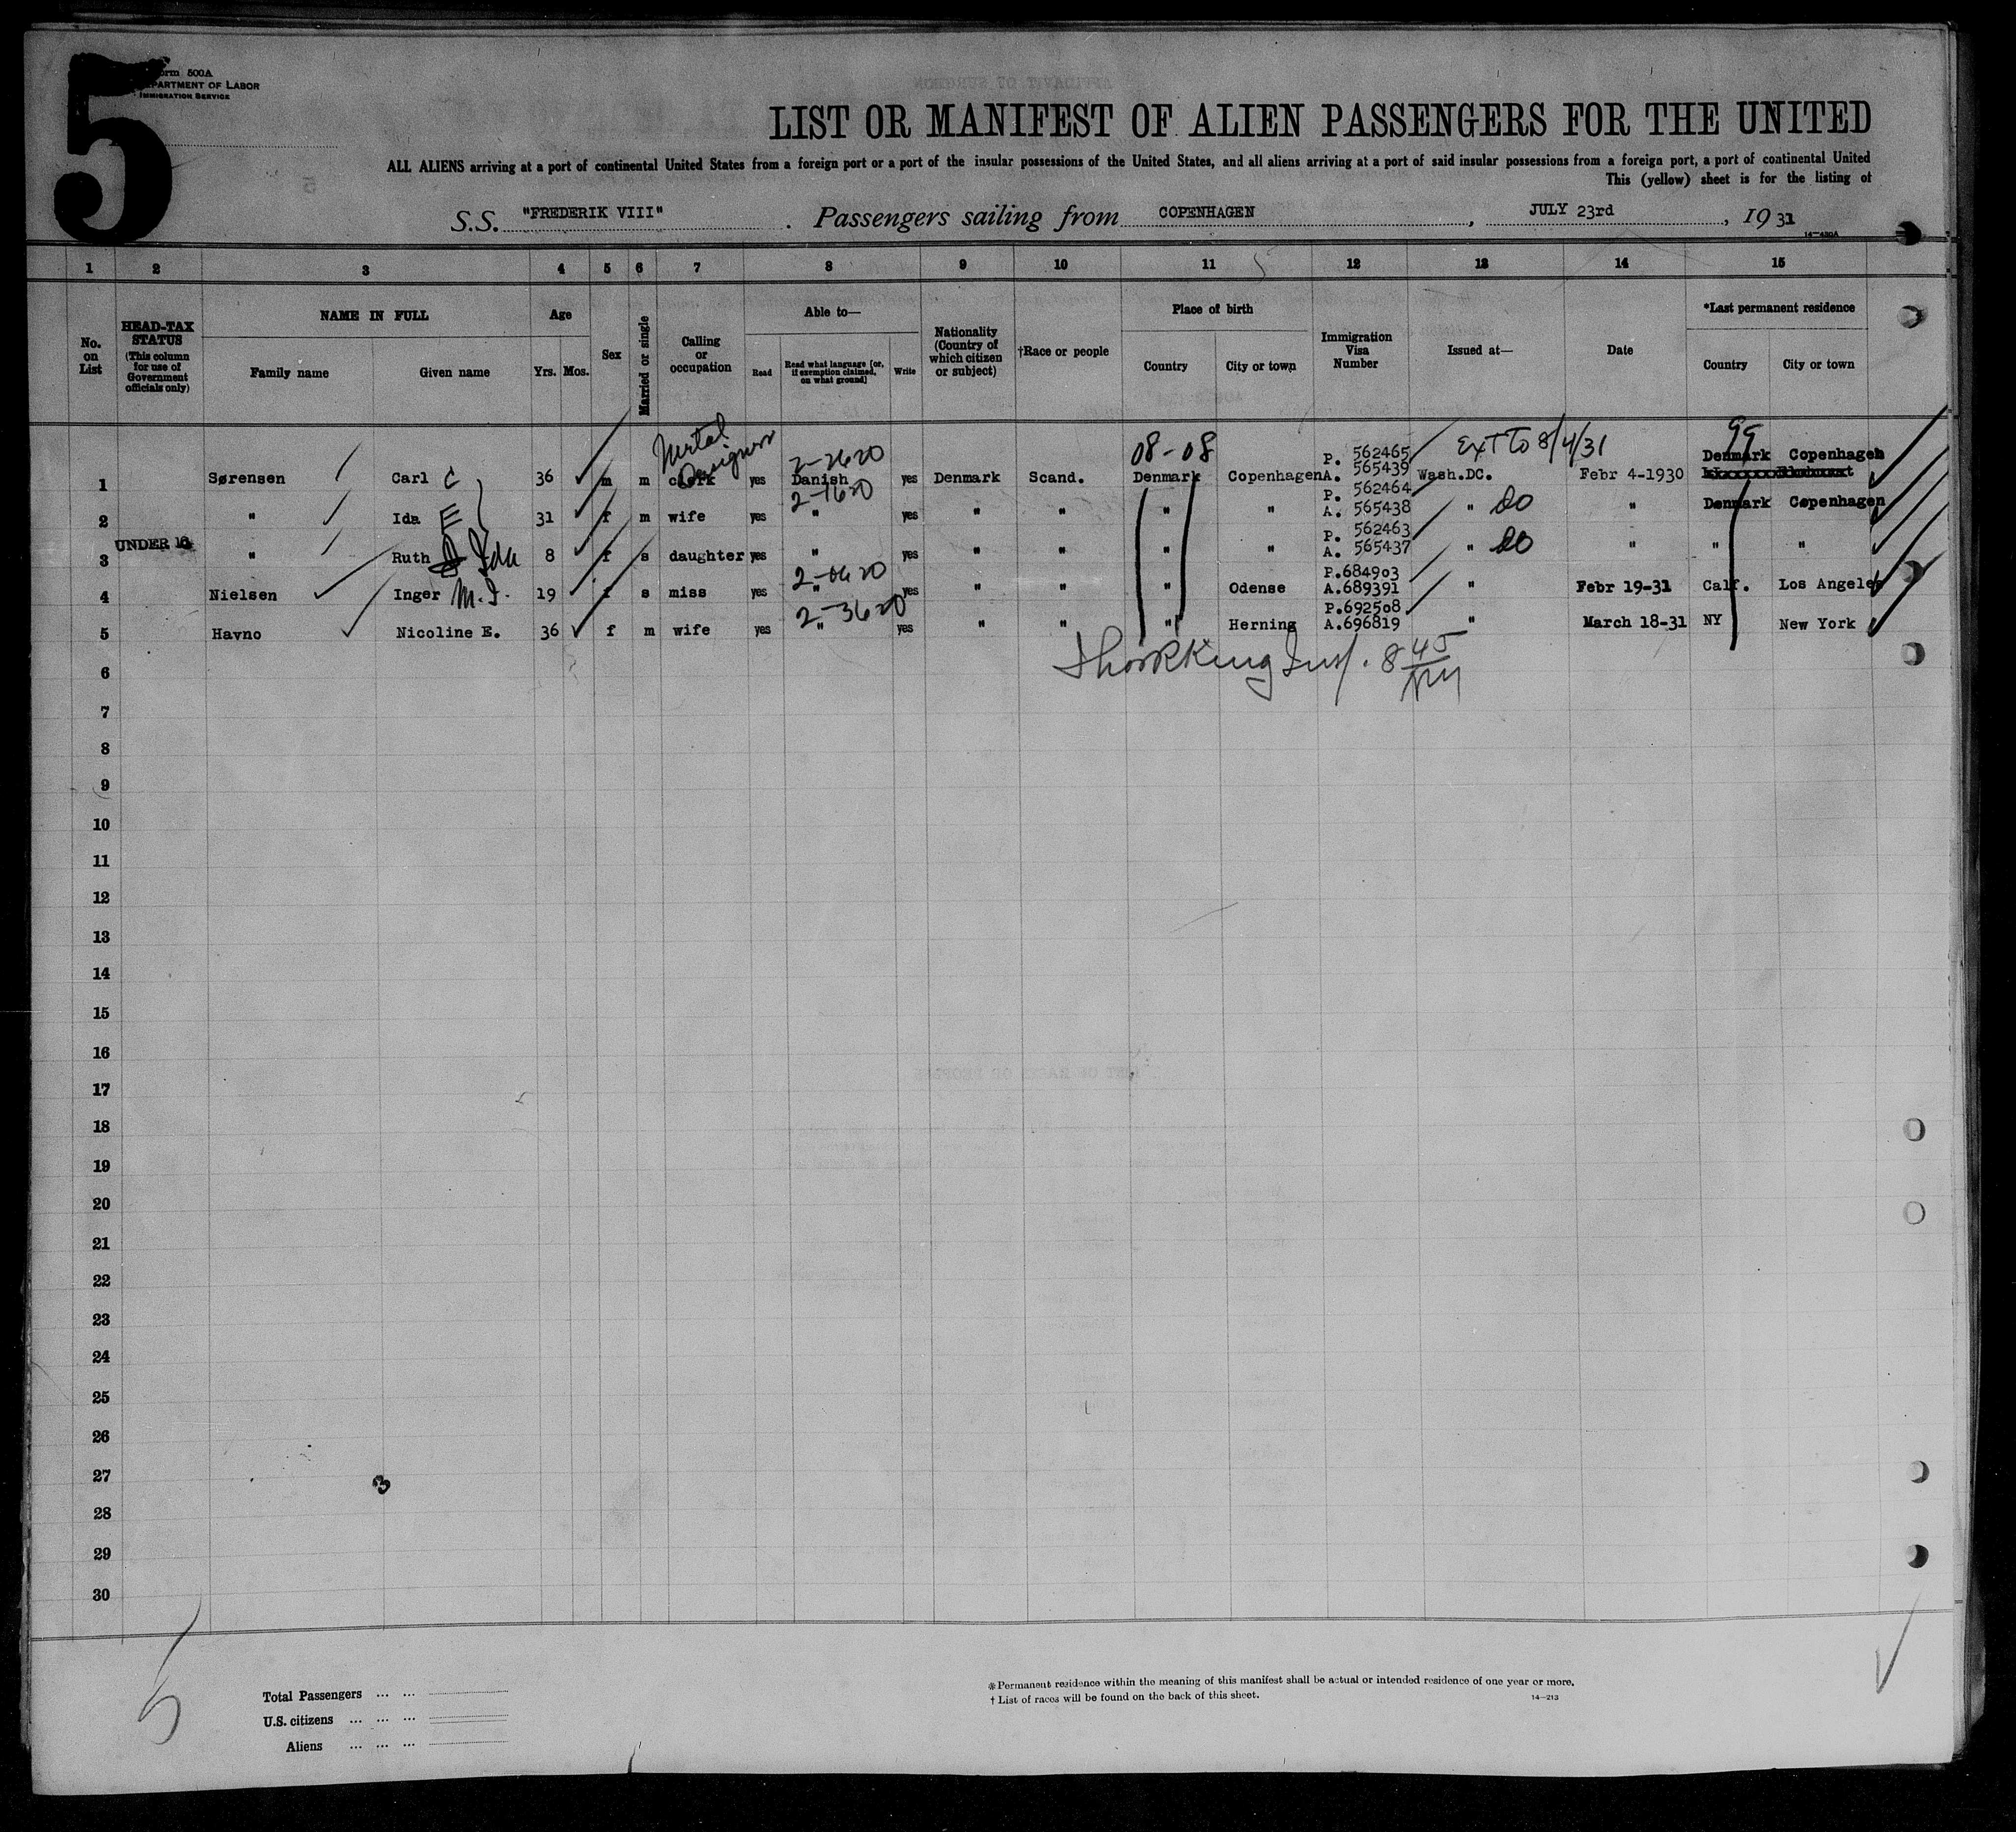 5
Form 500A
DEPARTMENT OF LABOR
IMMIGRATION SERVICE
LIST OR MANIFEST OF ALIEN PASSENGERS FOR THE UNITED
ALL ALIENS arriving at a port of continental United States from a foreign port or a port of the insular possessions of the United States, and all aliens arriving at a port of said insular possessions from a foreign port, a port of continental United
This (yellow) sheet is for the listing of
S.S. "FREDERIK VIII" . Passengers sailing from COPENHAGEN , JULY 23rd , 1931
14—430A
1 2 3 4 5 6 7 8 9 10 11 12 13 14 15
No. on List
HEAD-TAX STATUS (This column for use of Government officials only)
NAME IN FULL
Family name Given name
Age
Yrs. Mos.
Sex
Married or single
Calling or occupation
Able to—
Read Read what language (or, if exemption claimed, on what ground) Write
Nationality (Country of which citizen or subject)
†Race or people
Place of birth
Country City or town
Immigration Visa Number
Issued at—
Date
*Last permanent residence
Country City or town
Metal Designer 2-2620 08-08 P. 562465 Ext to 8/4/31 99 Denmark Copenhagen
1 Sørensen Carl C 36 m m clerk yes Danish yes Denmark Scand. Denmark Copenhagen A. 565439 Wash.DC. Febr 4-1930
2-1620 P. 562464
2 " Ida E 31 f m wife yes " yes " " " " A. 565438 " do " Denmark Copenhagen
UNDER 16 P. 562463
3 " Ruth Ida 8 f s daughter yes " yes " " " " A. 565437 " do " " "
2-0620 P.684903
4 Nielsen Inger M.I. 19 f s miss yes " yes " " " Odense A.689391 " Febr 19-31 Calf. Los Angeles
2-3620 P.692508
5 Havno Nicoline E. 36 f m wife yes " yes " " " Herning A.696819 " March 18-31 NY New York
6 King Insp. 8 45
7
8
9
10
11
12
13
14
15
16
17
18
19
20
21
22
23
24
25
26
27
28
29
30
Total Passengers ... ...
U.S. citizens ... ... ...
Aliens ... ... ...
*Permanent residence within the meaning of this manifest shall be actual or intended residence of one year or more.
† List of races will be found on the back of this sheet. 14—213